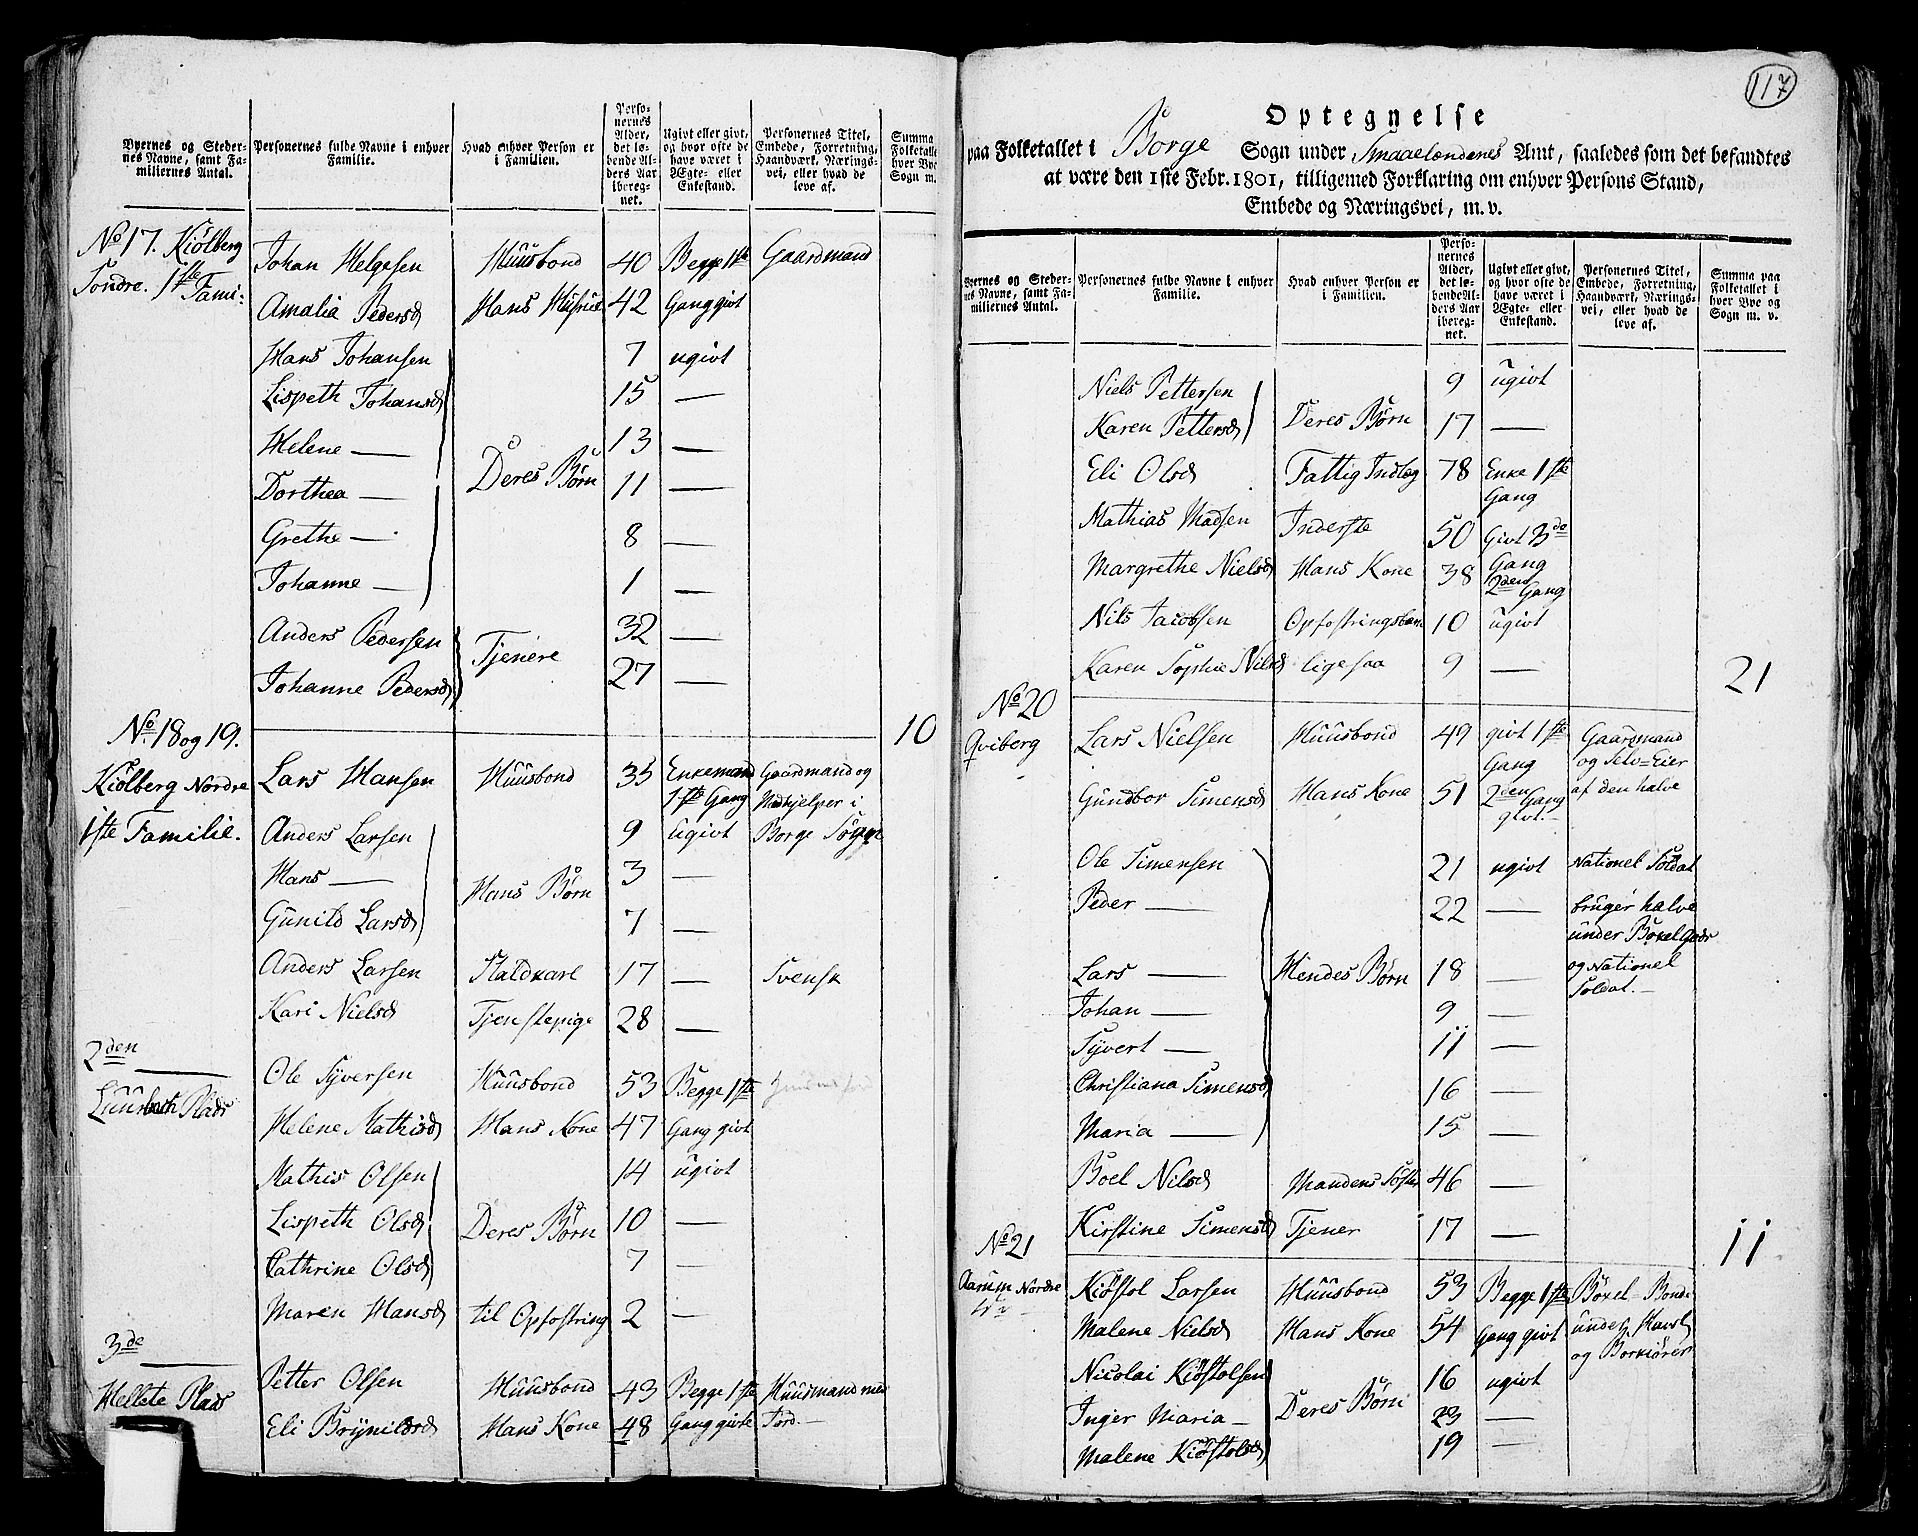 Byernes og Steder- Personernes fulde Navne i enhver Hvad enhver Person er Perso- Ugivt eller givt, Personernes Titel, Summa
nes Navne, samt Fa- Familie. i Familien. nernes og hvor ofte de Embede, Forretning, Folketalle
miliernes Antal. Alder, have været i Haandværk, Nærings- hver Bye
det lø- Ægte- eller vei, eller hvad de Sogn m.
bende Al- Enkestand. leve af.
ders Aar
ibereg-
net.
No 17. Kiölberg Johan Helgesen Huusbond 40 Begge 1ste Gaardmand
Söndre. 1ste Fami: Amalia Pedersd Hans Hustrue 42 Gang givt
Hans Johansen 7 ugivt
Lispeth Johansd 15 —
Helene — 13 —
Dorthea — Deres Børn 11 —
Grethe — 8 —
Johanne — 1 —
Anders Pedersen Tjenere 32 —
Johanne Pedersd 27 —
10
No. 18 og 19.
Kiölberg Nordre Lars Hansen Huusbond 35 Enkemand Gaardmand og
1ste Gang Medhjelper i
1ste Familie. Anders Larsen 9 ugivt Borge Sogn
Hans — Hans Børn 3 —
Gunild Larsd 7 —
Anders Larsen Staldkarl 17 — Svensk
Kari Nielsd Tjenstepige 28 —
2den — Ole Syversen Huusbond 53 Begge 1ste
Plads Helene Mathisd Hans Kone 47 Gang givt
Mathis Olsen 14 ugivt
Lispeth Olsd Deres Børn 10 —
Cathrine Olsd 7 —
Maren Hansd til Opfostring 2 —
3de — Petter Olsen Huusbond 43 Begge 1ste Huusmand med
Hellete Plads Eli Brynildsd Hans Kone 48 Gang givte Jord.—
117
Optegnelse
paa Folketallet i Borge Sogn under Smaaelændenes Amt, saaledes som det befandtes
at være den 1ste Febr. 1801, tilligemed Forklaring om enhver Persons Stand,
Embede og Næringsvei, m. v.
Byernes og Steder- Personernes fulde Navne i enhver Hvad enhver Person er Perso- Ugivt eller givt, Personernes Titel, Summa paa
nes Navne, samt Fa- Familie. i Familien. nernes og hvor ofte de Embede, Forretning, Folketallet i
miliernes Antal. Alder, have været i Haandværk, Nærings- hver Bye og
det lø- Ægte- eller vei, eller hvad de Sogn m. v.
bende Al- Enkestand. leve af.
ders Aar
ibereg-
net.
Niels Pettersen 9 ugivt
Karen Pettersd Deres Børn 17 —
Eli Olsd Fattig Indlæg 78 Enke 1ste
Gang
Mathias Madsen Inderste 50 Givt 3de
Gang
Margrethe Nielsd Hans Kone 38 2den Gang
Nils Jacobsen Opfostringsbarn 10 ugivt
Karen Sophie Nilsd ligesaa 9 —
21
No 20
Qviberg Lars Nielsen Huusbond 49 givt 1ste Gaardmand
Gang og Selv=Eier
Gundbor Simensd Hans Kone 51 2den Gang af den halve
givt.—
Ole Simensen 21 ugivt National Soldat
Peder — 22 — bruger halve
under Boxel Godr
Lars — Hendes Børn 18 — og National
Soldat.—
Johan — 9 —
Syvert — 11 —
Christiana Simensd 16 —
Maria — 15 —
Boel Nilsd Mandens Söster 46 —
Kirstine Simensd Tjener 17 —
11
No 21
Aarum Nordre Kiøstol Larsen Huusbond 53 Begge 1ste Böxel=Bonde
Malene Nielsd Hans Kone 54 Gang givt
og Borkiörer
Nicolai Kiøstolsen 16 ugivt
Inger Maria — Deres Børn 23 —
Malene Kiøstolsd 19 —